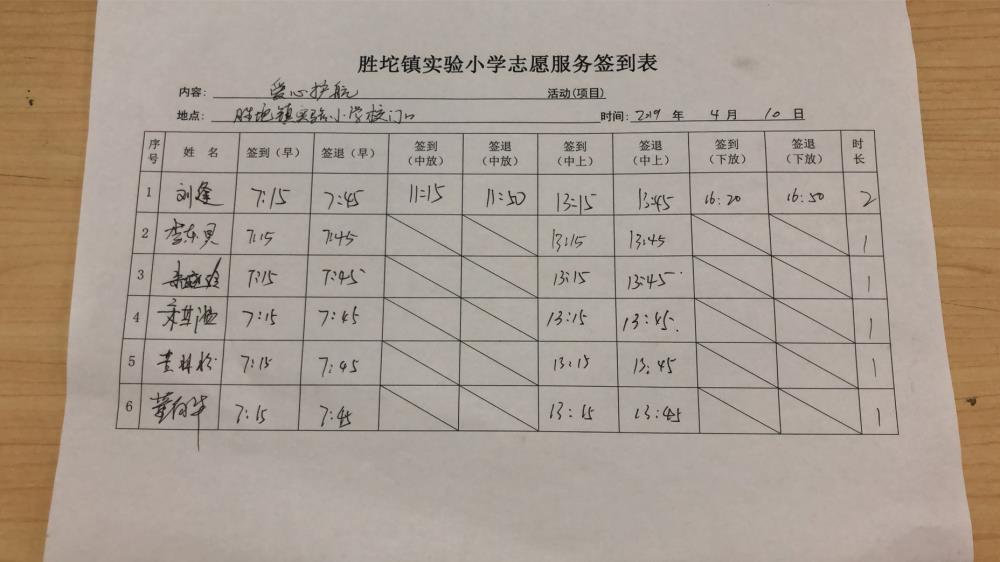 胜坨镇实验小学志愿服务签到表
内容: 爱心护航 活动(项目)
地点: 胜坨镇实验小学校门口 时间: 2019 年 4 月 10 日
序号 姓名 签到(早) 签退(早) 签到(中放) 签退(中放) 签到(中上) 签退(中上) 签到(下放) 签退(下放) 时长
1 刘逢 7:15 7:45 11:15 11:50 13:15 13:45 16:20 16:50 2
2 7:15 7:45 13:15 13:45 1
3 7:15 7:45 13:15 13:45 1
4 7:15 7:45 13:15 13:45 1
5 7:15 7:45 13:15 13:45 1
6 7:15 7:45 13:15 13:45 1